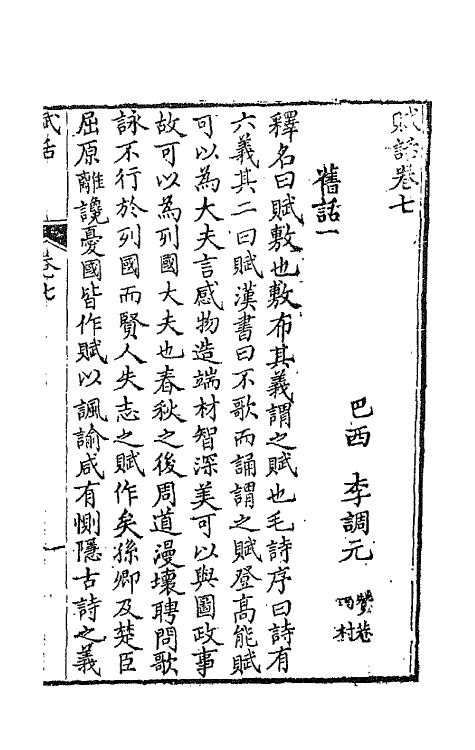 賦話卷七
巴西 李調元
舊話一
釋名曰賦敷也敷布其義謂之賦也毛詩序曰詩有
六義其二曰賦漢書曰不歌而誦謂之賦登高能賦
可以為大夫言感物造端材智深美可以與圖政事
故可以為列國大夫也春秋之後周道漫壞聘問歌
詠不行於列國而賢人失志之賦作矣孫卿及楚臣
屈原離讒憂國皆作賦以諷諭咸有惻隱古詩之義
賦話 卷七 一